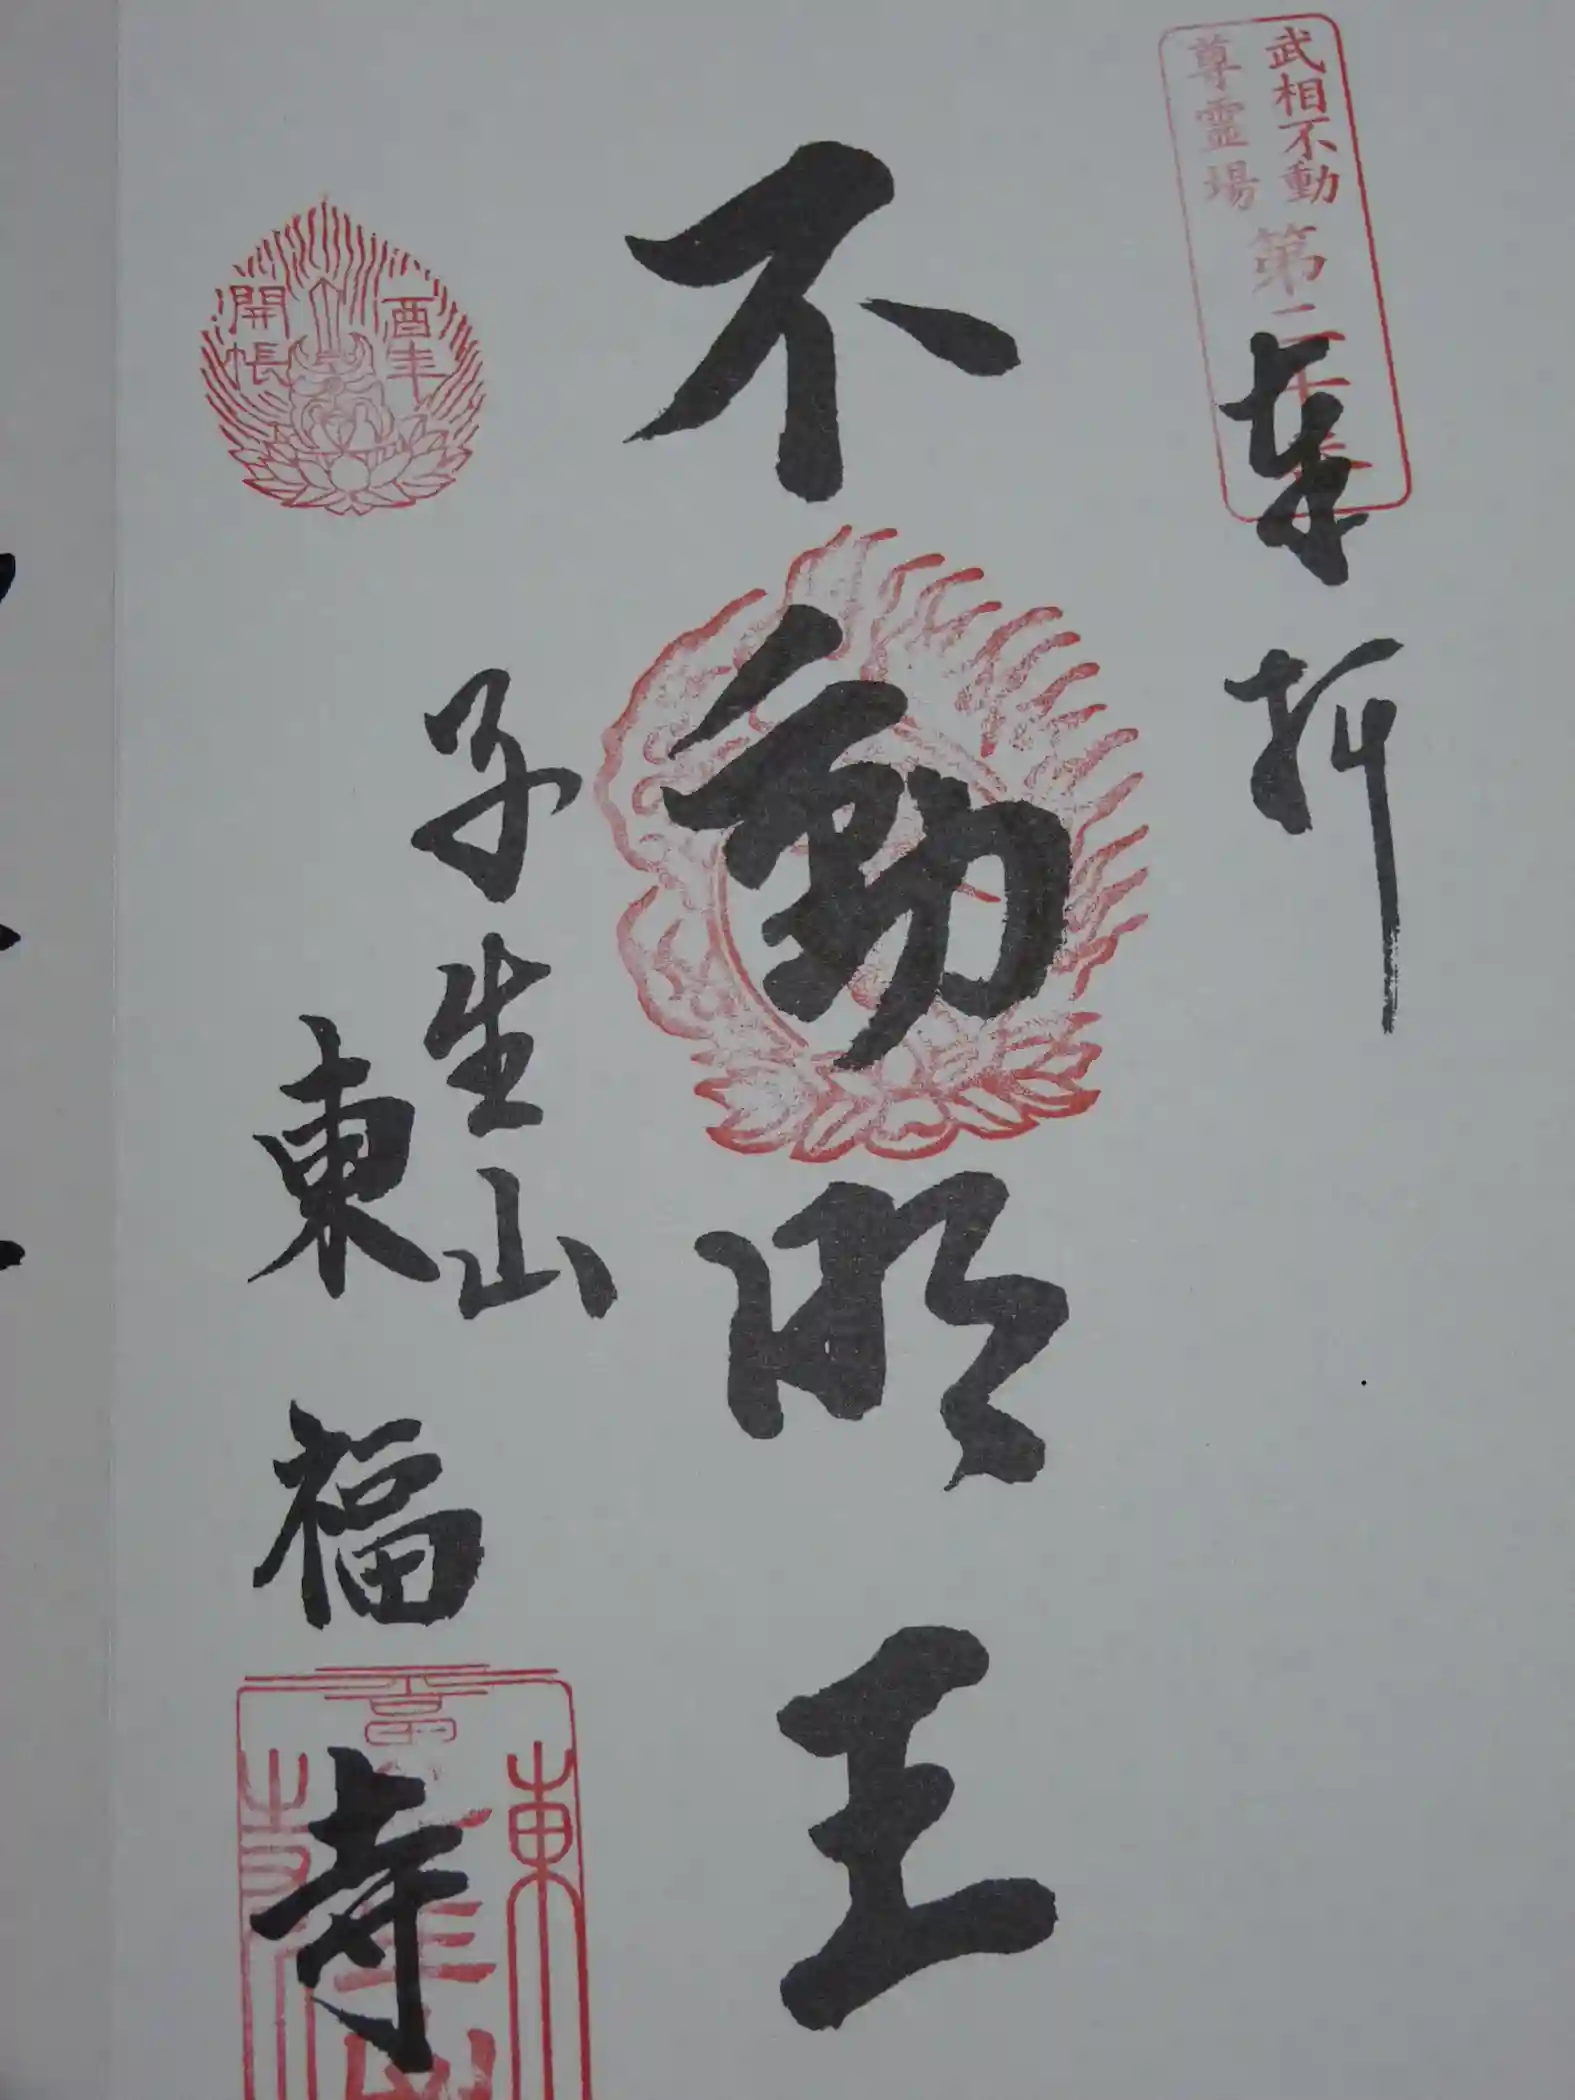 武相不動
尊霊場
第二十
奉拝
不動明王
子生山
東福寺
酉年
開帳
東